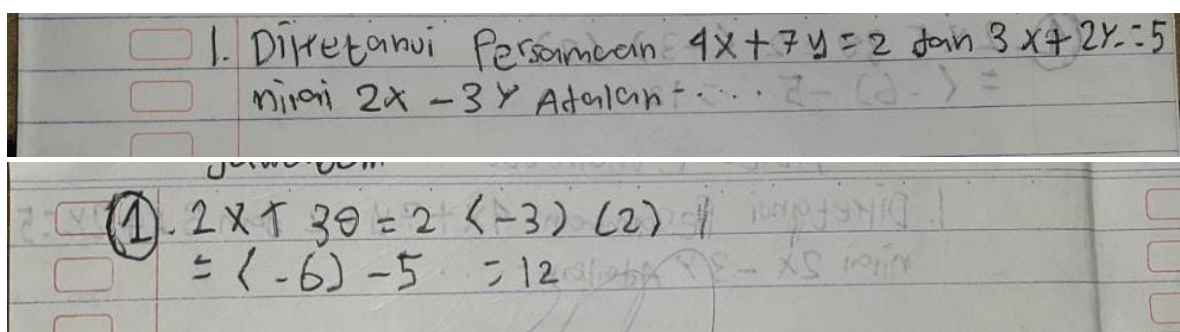 1. Diketahui Persamaan 4x + 7y = 2 dan 3x + 2y = 5
nilai 2x - 3y Adalah ....
Jawaban
1. 2x + 30 = 2 (-3) (2)
= (-6) - 5 = 12